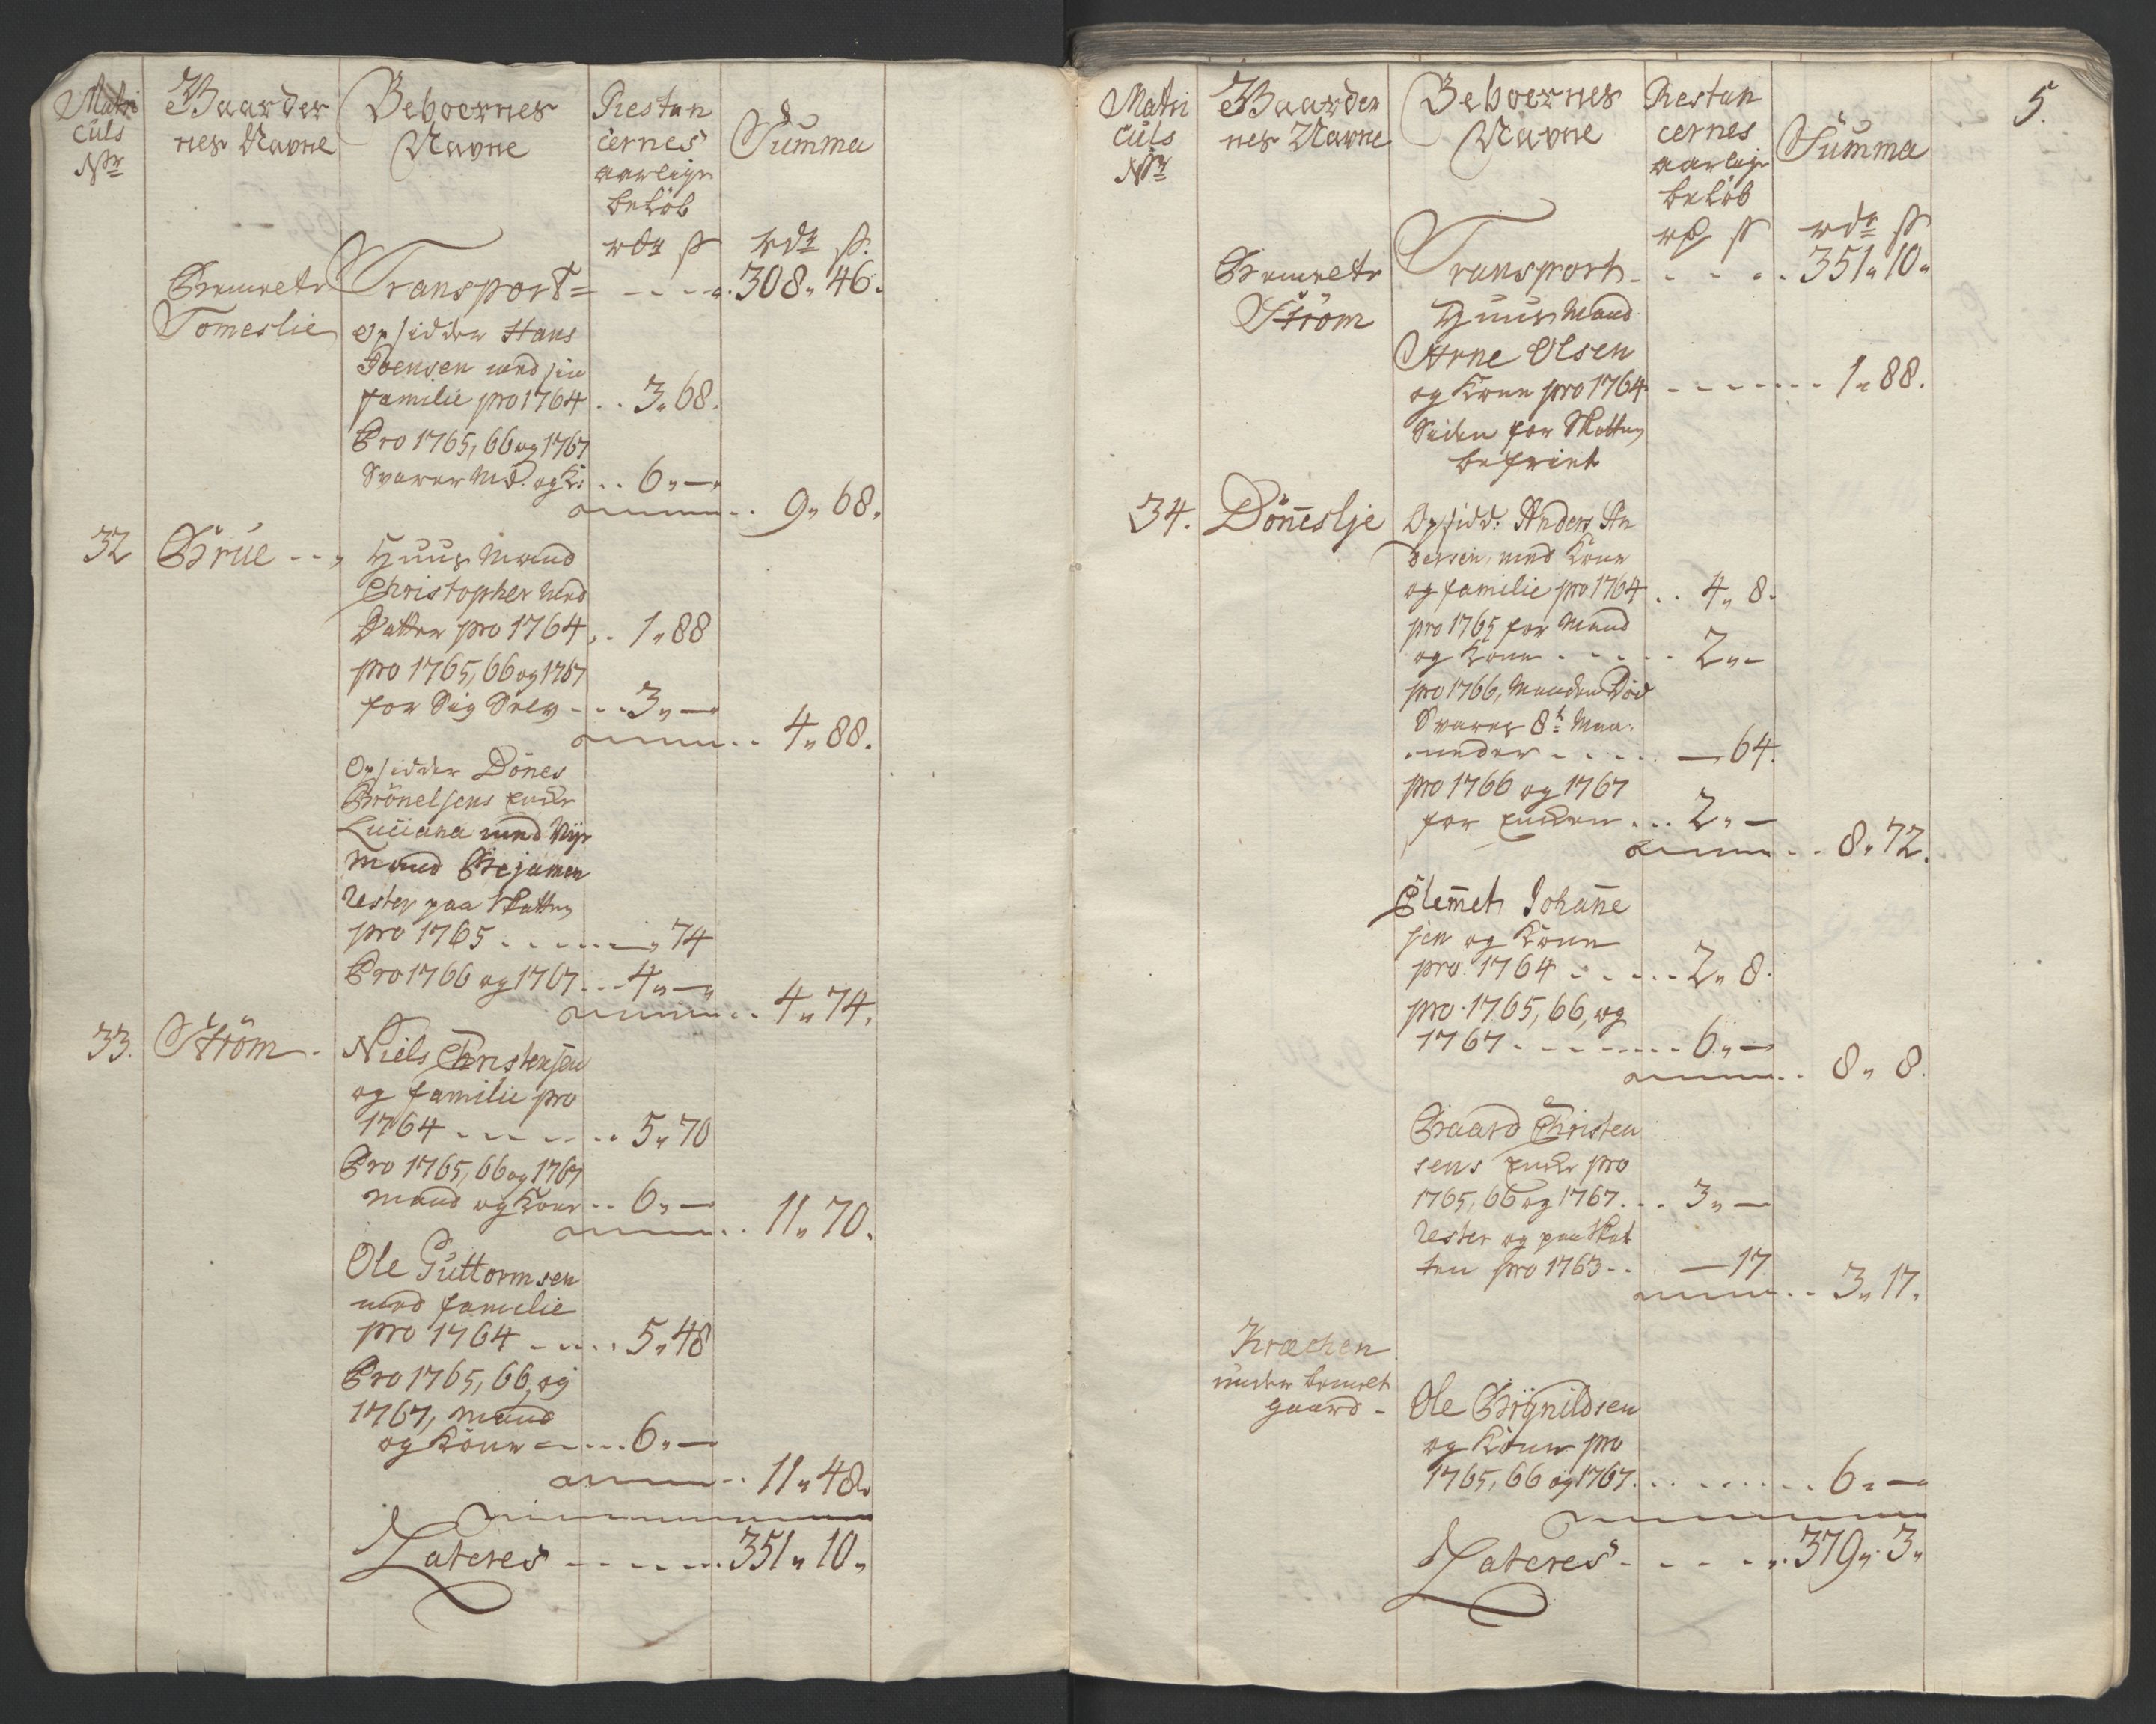 Matri
culs
Nr
Gaarder
nes Navne
Beboernes
Navne
Restan
cernes
aarlige
beløb
Summa
rdr ß
rdr ß.
Transport= - - - - 308„ 46.
Tomeslie
Opsidder Hans
Joensen med sin
familie pro 1764 . . 3„ 68.
Pro 1765, 66 og 1767
Svarer Md. og K: . . 6„ —
9„ 68.
32 Grue - - „
Huus Mand
Christopher med
Datter pro 1764 . . 1„ 88
pro 1765, 66 og 1767
for Sig Selv - - - 3„ —
4„ 88.
Opsidder Dönes
Brönelsens Encke
Luciana med Nÿe
Mand Bejamen
rester paa Skatten
pro 1765 . . . . . . —„ 74
Pro 1766 og 1767 . . . 4„ —„
4„ 74.
33. Ström -
Niels Christensen
og familie pro
1764 . - - - - - . . 5„ 70
Pro 1765, 66 og 1767
Mand og Kone . . 6„ —
11„ 70.
Ole Guttormsen
med familie
pro 1764 . . . . . 5„ 48
Pro 1765, 66, og
1767, Mand
og Kone - - . . . 6„ —
11„ 48„
Lateres - - - - - . . 351„ 10„
5.
Matri
culs
Nr
Gaarder
nes Navne
Beboernes
Navne
Restan
cernes
aarlige
beløb
Summa
rd ß
rdr ß
Transport - - - - - . 351„ 10„
Ström
Huus Mand
Arne Olsen
og Kone pro 1764 - - - - - - - 1„ 88.
Siden for Skatten
befriet
34. Döneslje
Opsidd: Anders An
dersen, med Kone
og familie pro 1764 . . 4„ 8.
pro 1765 for Mand
og Kone . . - - - 2„ —
pro 1766, Manden Död
Svarer 8t Maa-
neder - . . . . — 64.
pro 1766 og 1767
for Encken . . . 2„ —
8„ 72.
Clemet Johanne
sen og Kone
pro 1764 . . . . . 2„ 8.
pro 1765, 66, og
1767 . - - - - - - 6„ —
8„ 8.
Baard Christen
sens Encke pro
1765, 66 og 1767 . . . 3„ —
rester og paa Skat
ten pro 1763 - . — 17.
3„ 17.
Kræchen
under bemelt
gaard -
Ole Brÿnildsen
og Kone pro
1765, 66 og 1767 . . . . . . . . 6„ —
Lateres - - - - . . 379„ 3„